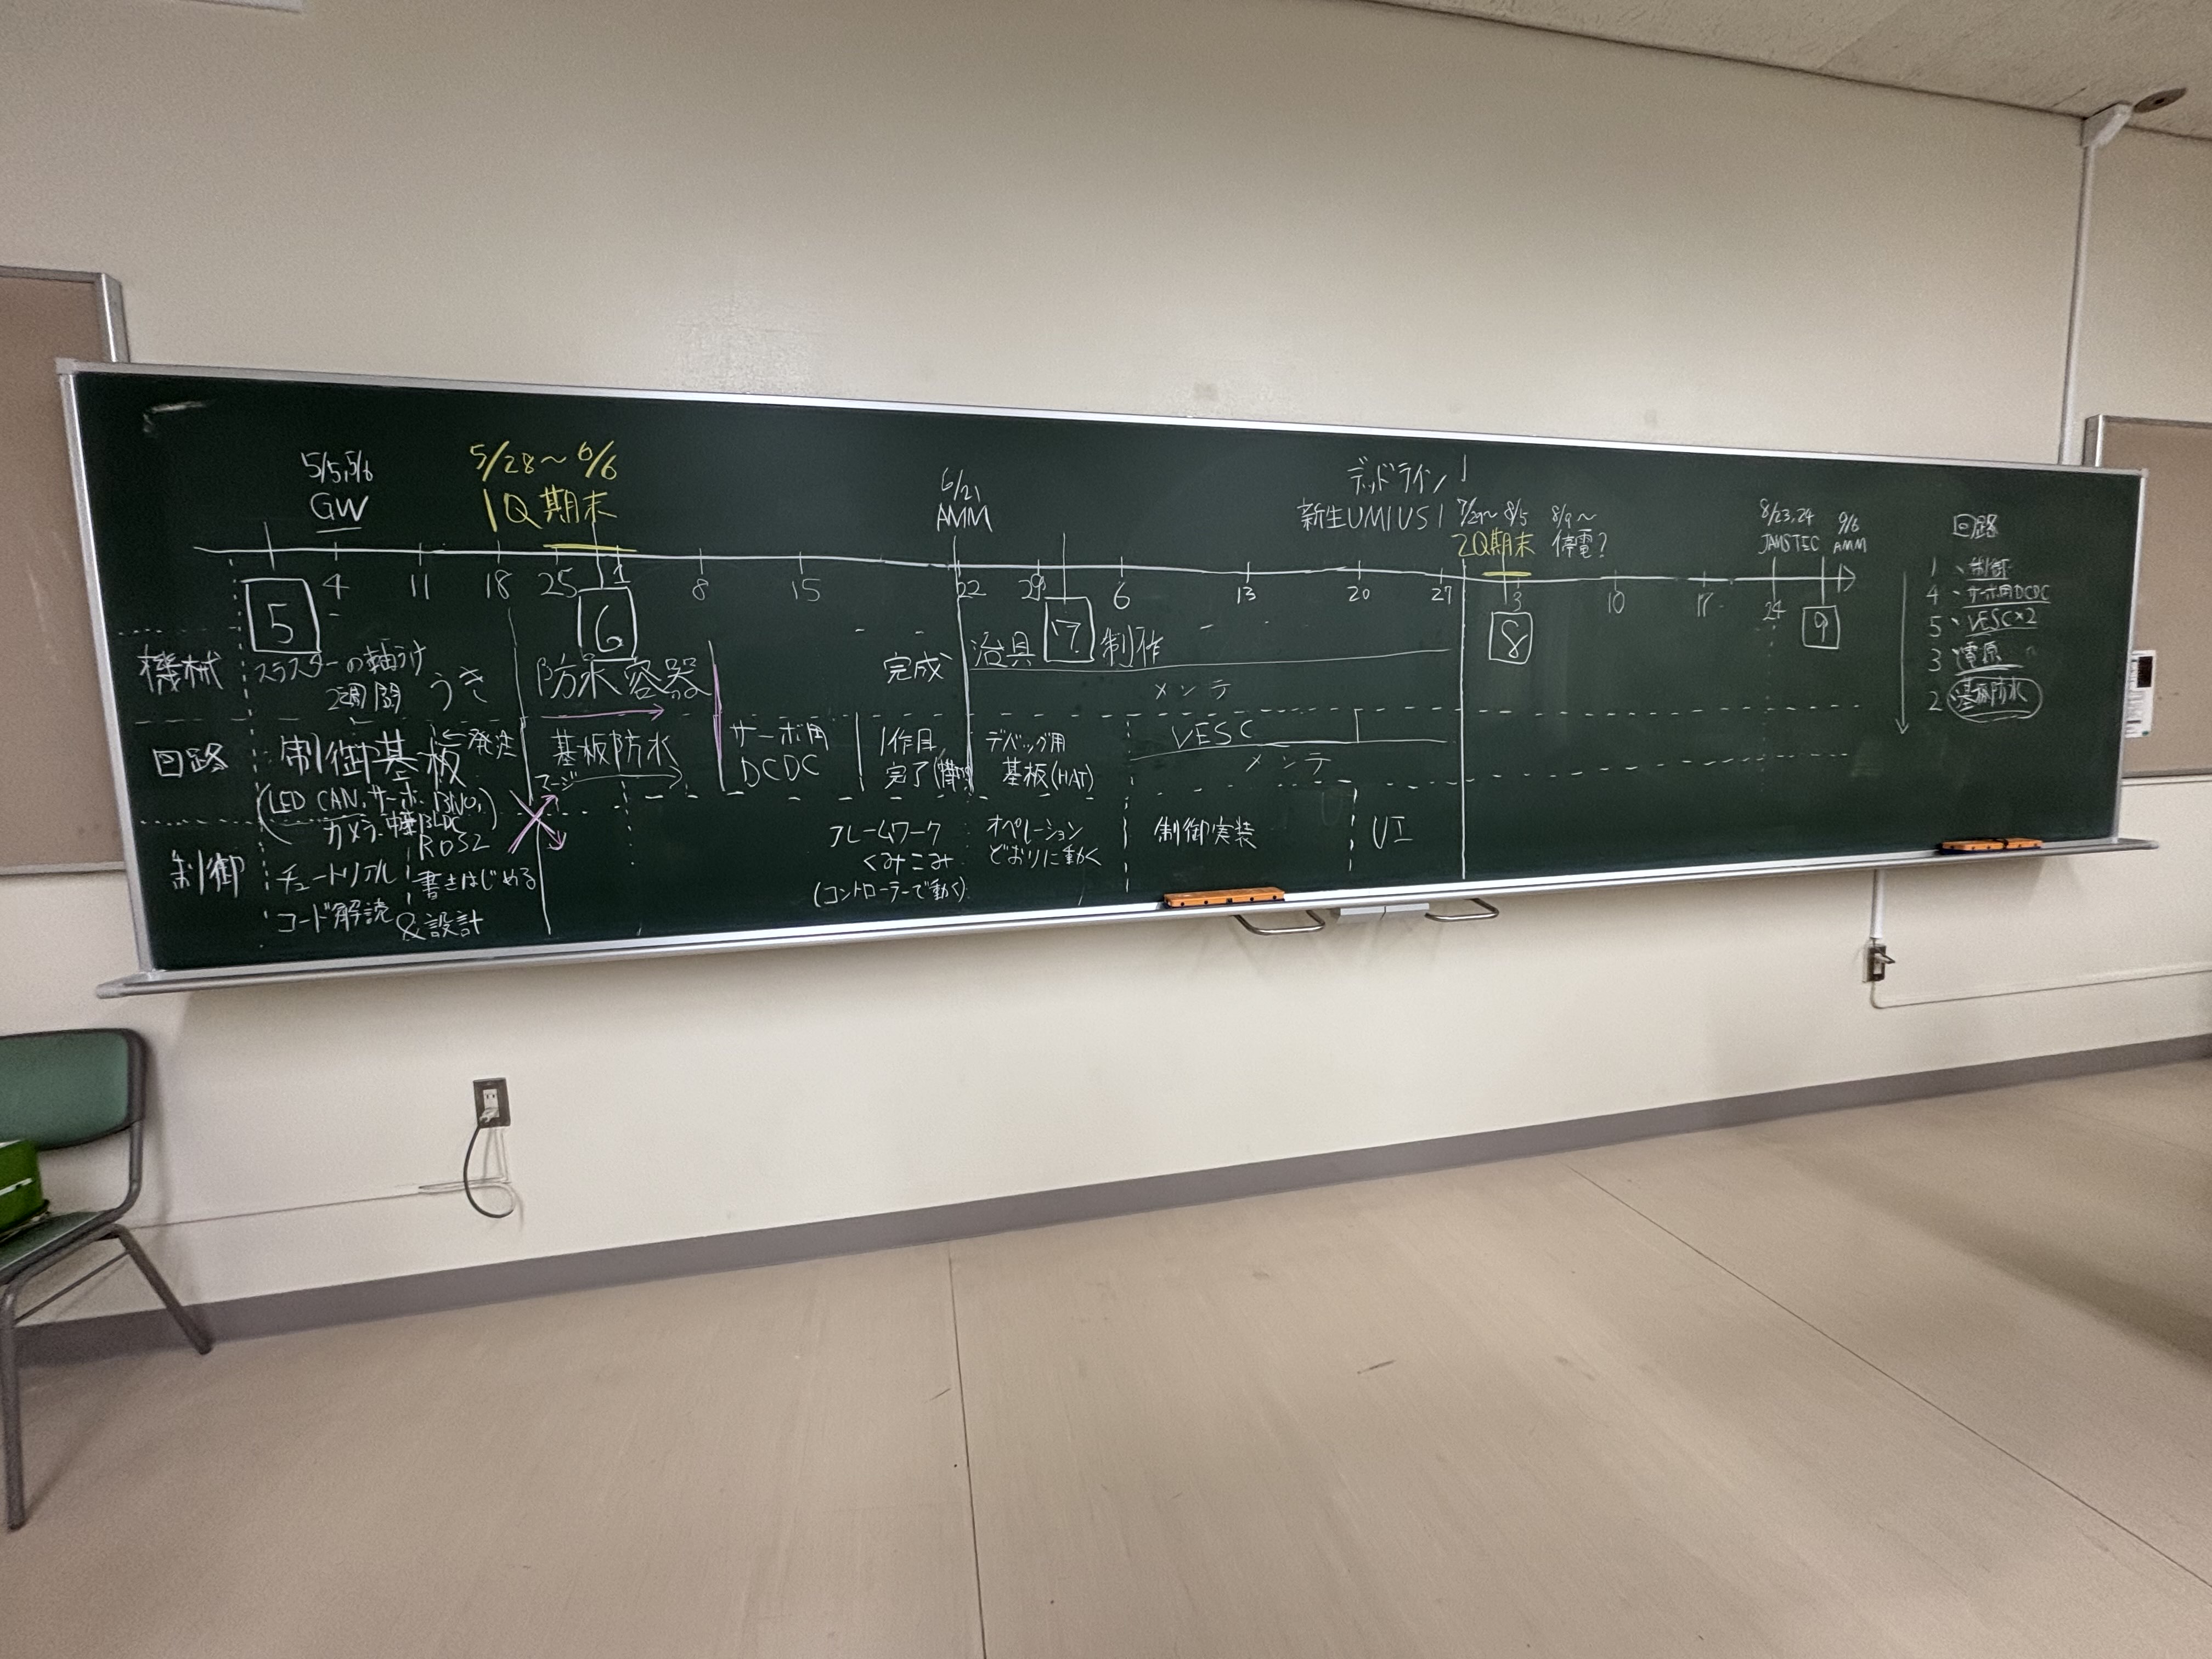 5/5,5/6
GW
5/28〜6/6
1Q期末
6/21
AMM
デッドライン
新生UMIUS
7/29〜8/5
2Q期末
8/9〜
停電?
8/23,24
JAMSTEC
9/6
AMM
4 11 18 25 1 8 15 22 29 6 13 20 27 3 10 17 24
5 6 7 8 9
機械
スラスターの軸うけ
2週間
うき
防水容器
完成
治具 制作
メンテ
回路
制御基板
←発注
(LED CAN,サーボ BNO,
カメラ BLDC)
基板防水
サーボ用
DCDC
1作目
完了
デバッグ用
基板(HAT)
VESC
メンテ
マージ
制御
ROS2
チュートリアル
コード解読
書きはじめる
&設計
フレームワーク
くみこみ
(コントローラーで動く)
オペレーション
どおりに動く
制御実装
UI
回路
1、制御
4、サーボ用DCDC
5、VESC×2
3、電源
2、基板防水